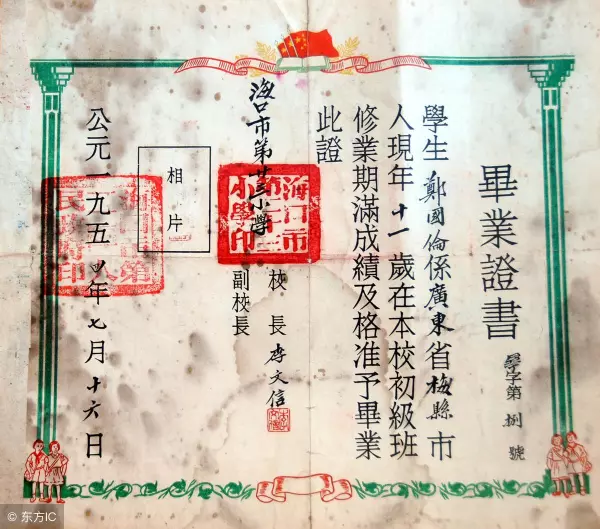 畢業證書
學字第捌號
學生鄭國倫係廣東省梅縣市
人現年十一歲在本校初級班
修業期滿成績及格准予畢業
此證
海口市第小學
校長李文信
副校長
相片
公元一九五四年七月十六日
© 东方IC